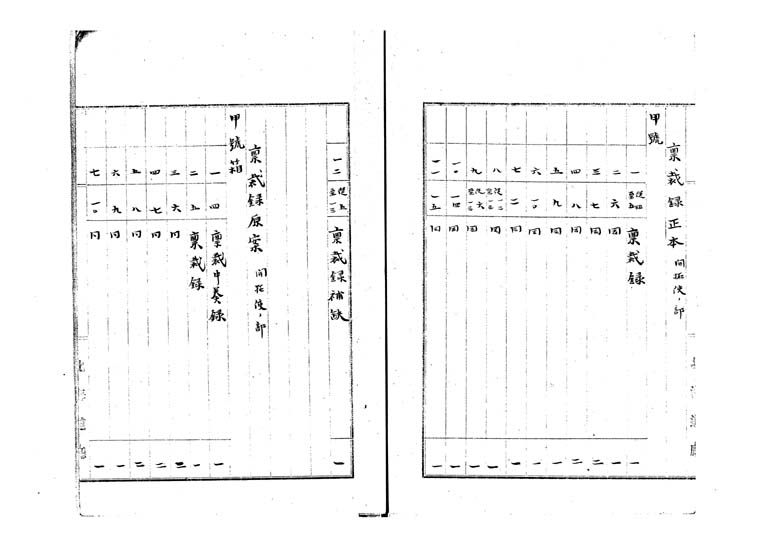 稟裁録正本 開拓使ノ部
甲號
一 從四至五 稟裁録 一
二 六 同 一
三 七 同 二
四 八 同 二
五 九 同 一
六 一〇 同 一
七 一一 同 一
八 同 一
九 從六至一三 同 一
一〇 一四 同 一
一一 一五 同 一
一二 從五至一三 稟裁録補缺 一
稟裁録原案 開拓使ノ部
甲號箱
一 四 稟裁申奏録 一
二 五 稟裁録 一
三 六 同 三
四 七 同 二
五 八 同 二
六 九 同 一
七 一〇 同 一